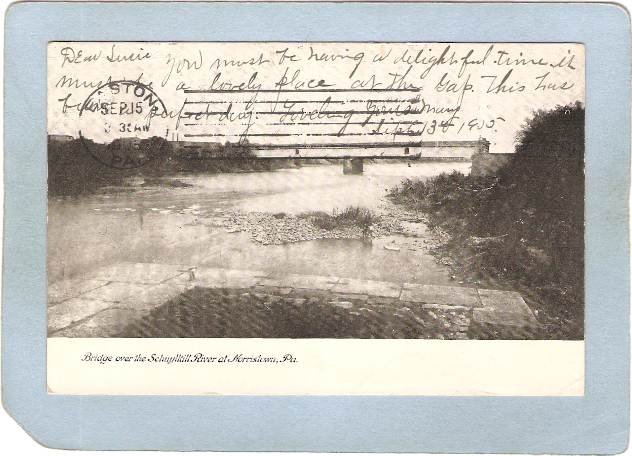 Dear Lucie You must be having a delightful time it
must be a lovely place at the Gap. This has
been a perfect day. Lovingly Cousin Mary
Sept 13th 1905.
STON
SEP 15
3 30 AM
PA.
Bridge over the Schuylkill River at Norristown, Pa.